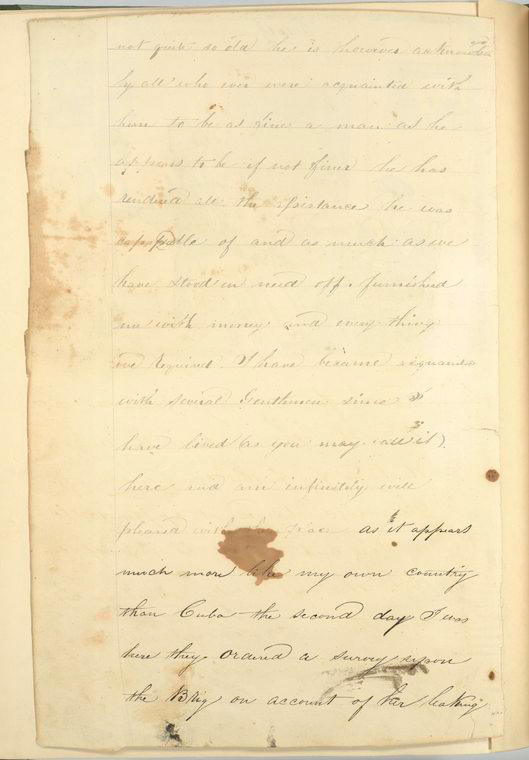 not quite so old he is however acknowledged
by all who ever were acquainted with
him to be as fine a man as he
appears to be if not finer he has
rendered all the assistance he was
capable of and as much as we
have stood in need off. furnished
me with money and every thing
we required. I have became acquainted
with several Gentlemen since I
have lived (as you may call it).
here and am infinitely well
pleased with the place as it appears
much more like my own country
than Cuba the second day I was
here they ordered a survey upon
the Brig on account of her leaking